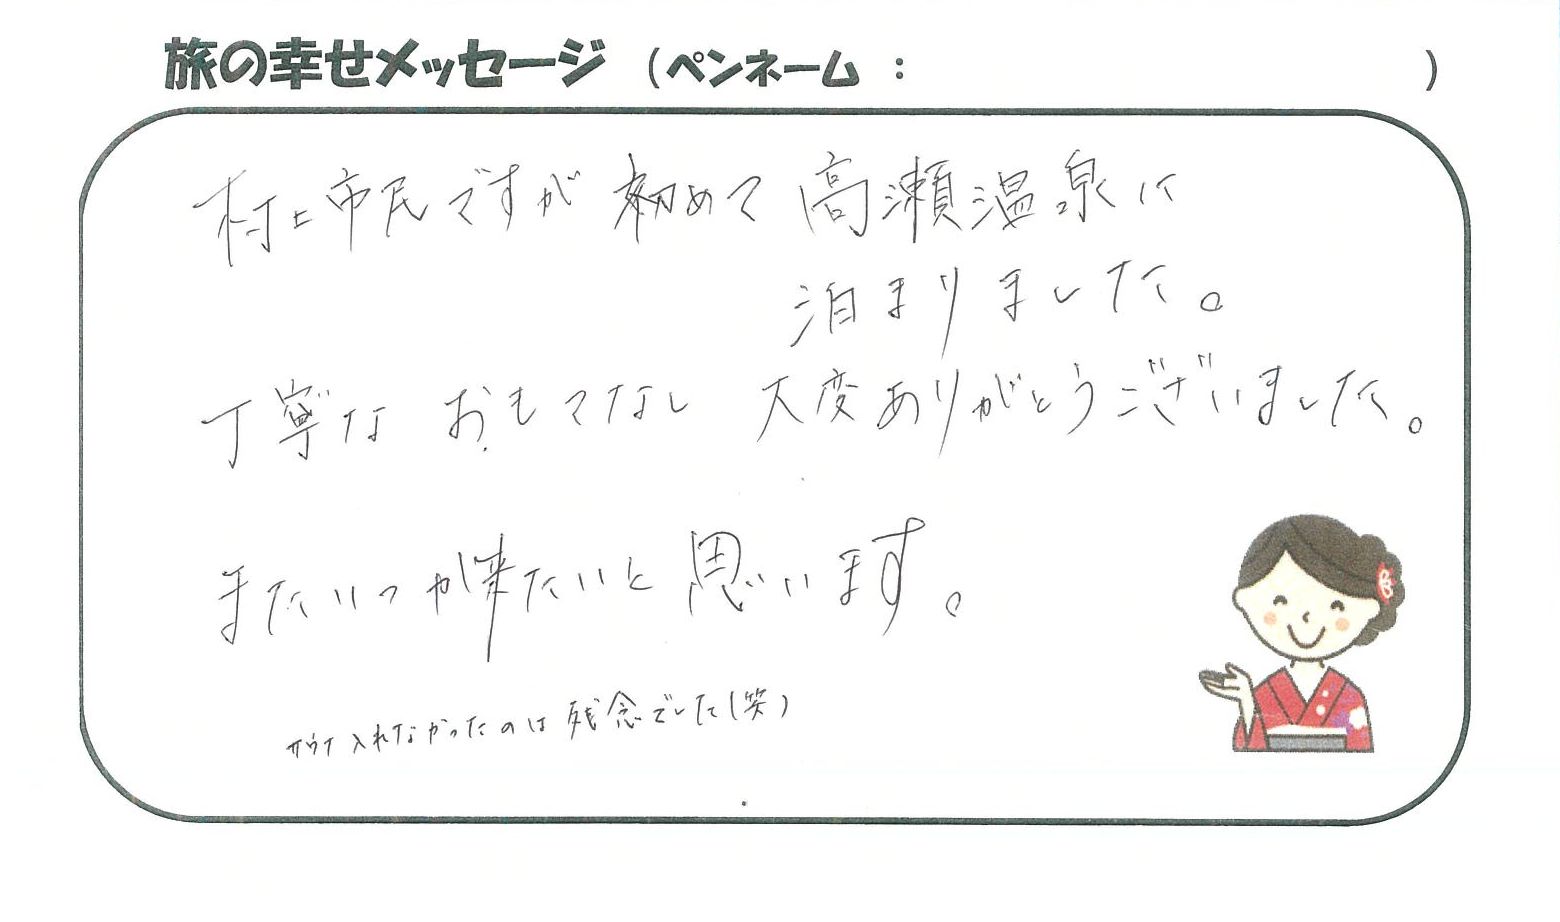 旅の幸せメッセージ (ペンネーム : )
村上市民ですが 初めて 高瀬温泉に
泊まりました。
丁寧な おもてなし 大変ありがとうございました。
またいつか来たいと思います。
サウナ入れなかったのは 残念でした(笑)